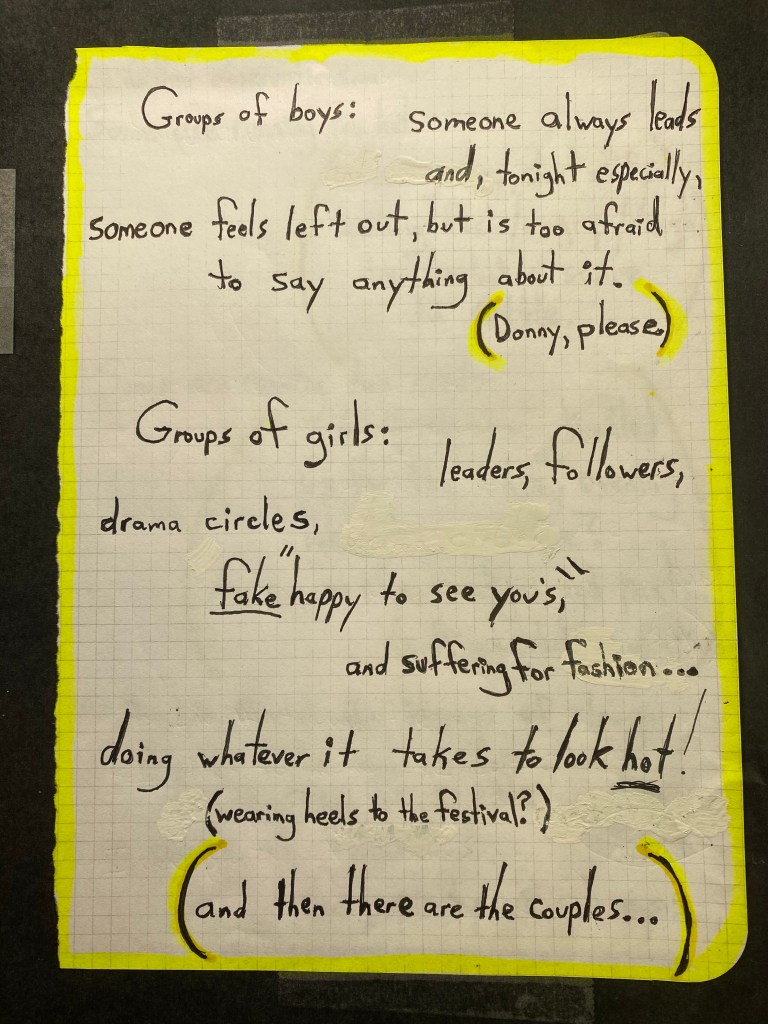 Groups of boys: someone always leads
and, tonight especially,
someone feels left out, but is too afraid
to say anything about it.
(Donny, please)
Groups of girls:
leaders, followers,
drama circles,
fake "happy to see you's,"
and suffering for fashion...
doing whatever it takes to look hot!
(wearing heels to the festival?)
(and then there are the couples...)